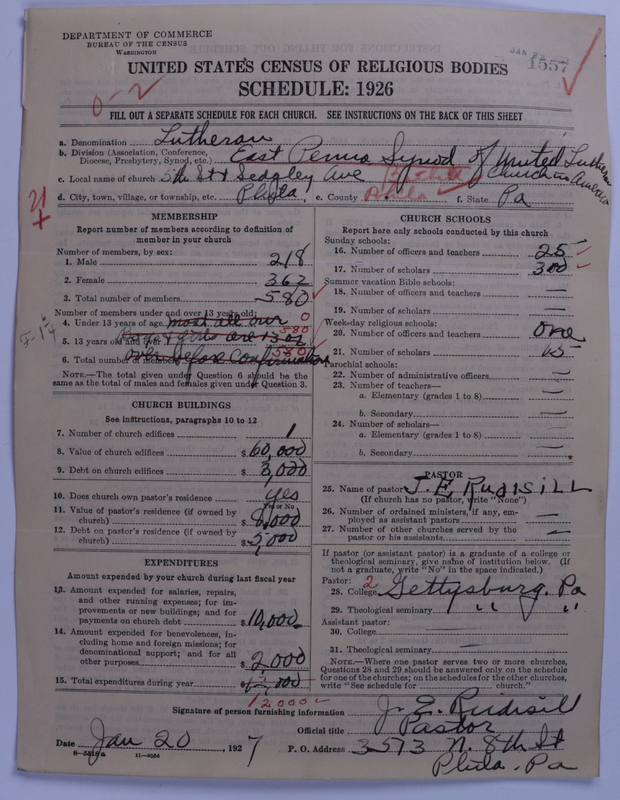 DEPARTMENT OF COMMERCE
BUREAU OF THE CENSUS
WASHINGTON
JAN 22
1557
UNITED STATES CENSUS OF RELIGIOUS BODIES
SCHEDULE: 1926
0-2
FILL OUT A SEPARATE SCHEDULE FOR EACH CHURCH. SEE INSTRUCTIONS ON THE BACK OF THIS SHEET
a. Denomination Lutheran
b. Division (Association, Conference, Diocese, Presbytery, Synod, etc.) East Penna Synod of United Lutheran Church in America
c. Local name of church 5th St & Sedgley Ave
d. City, town, village, or township, etc. Phila e. County Phila f. State Pa
21
+
MEMBERSHIP
Report number of members according to definition of
member in your church
Number of members, by sex:
1. Male 218
2. Female 362
3. Total number of members 580
Number of members under and over 13 years old:
4. Under 13 years of age most all our 0
5. 13 years old and boys & girls are 13 or 580
6. Total number of members over before confirmation 580
NOTE.—The total given under Question 6 should be the
same as the total of males and females given under Question 3.
CHURCH BUILDINGS
See instructions, paragraphs 10 to 12
7. Number of church edifices 1
8. Value of church edifices $60,000
9. Debt on church edifices $3,000
10. Does church own pastor's residence yes
Yes or No
11. Value of pastor's residence (if owned by
church) $8,000
12. Debt on pastor's residence (if owned by
church) $5,000
EXPENDITURES
Amount expended by your church during last fiscal year
13. Amount expended for salaries, repairs,
and other running expenses; for im-
provements or new buildings; and for
payments on church debt $10,000
14. Amount expended for benevolences, in-
cluding home and foreign missions; for
denominational support; and for all
other purposes $2,000
15. Total expenditures during year $12,000
12000
CHURCH SCHOOLS
Report here only schools conducted by this church
Sunday schools:
16. Number of officers and teachers 25
17. Number of scholars 300
Summer vacation Bible schools:
18. Number of officers and teachers —
19. Number of scholars —
Week-day religious schools:
20. Number of officers and teachers one
21. Number of scholars
Parochial schools:
22. Number of administrative officers —
23. Number of teachers—
a. Elementary (grades 1 to 8) —
b. Secondary —
24. Number of scholars—
a. Elementary (grades 1 to 8) —
b. Secondary —
PASTOR
25. Name of pastor J. E. RUDISILL
(If church has no pastor, write "None")
26. Number of ordained ministers, if any, em-
ployed as assistant pastors —
27. Number of other churches served by the
pastor or his assistants —
If pastor (or assistant pastor) is a graduate of a college or
theological seminary, give name of institution below. (If
not a graduate, write "No" in the space indicated.)
Pastor: 2
28. College Gettysburg. Pa
29. Theological seminary " "
Assistant pastor:
30. College
31. Theological seminary —
NOTE.—Where one pastor serves two or more churches,
Questions 28 and 29 should be answered only on the schedule
for one of the churches; on the schedules for the other churches,
write "See schedule for church."
Signature of person furnishing information J. E. Rudisill
Official title Pastor
Date Jan 20, 1927 P. O. Address 3573 N. 8th St
Phila. Pa
11—9054